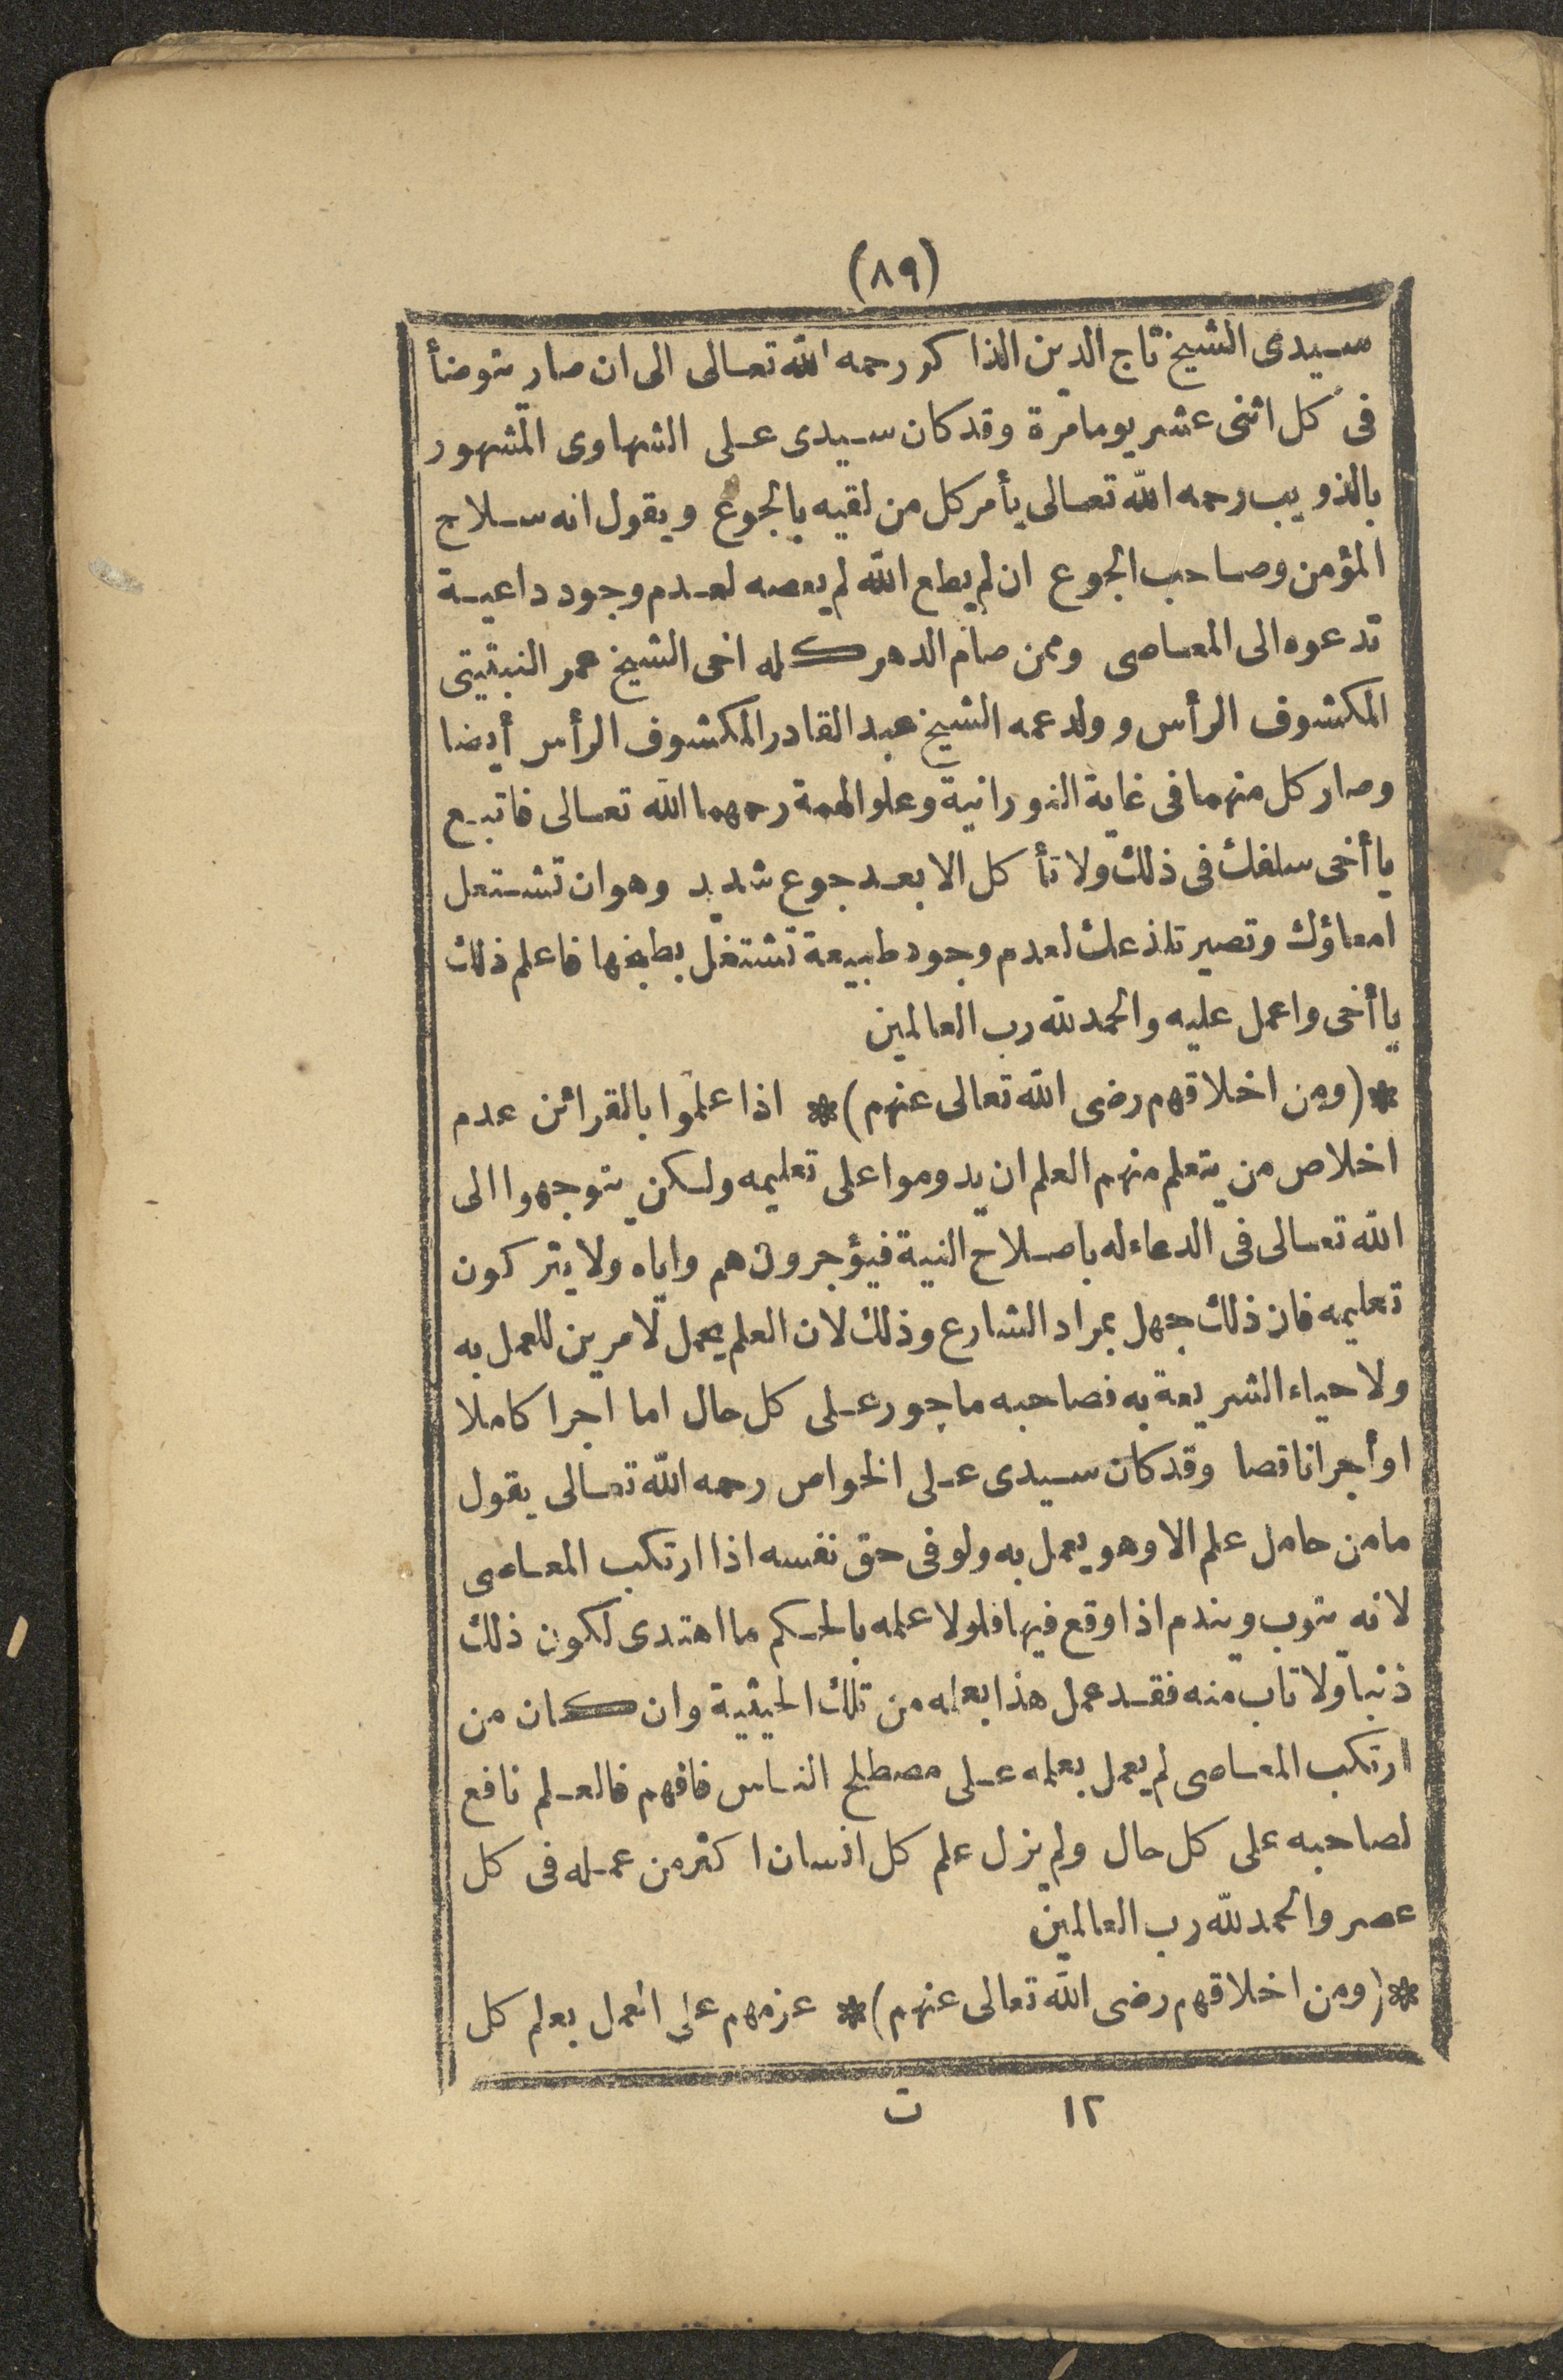 (٨٩)
سيدى الشيخ تاج الدين الذاكر رحمه الله تعالى الى ان صار يتوضأ
فى كل اثنى عشر يوما مرة وقد كان سيدى على الشهاوى المشهور
بالذويب رحمه الله تعالى يأمر كل من لقيه بالجوع ويقول انه سلاح
المؤمن وصاحب الجوع ان لم يطع الله لم يعصه لعدم وجود داعية
تدعوه الى المعاصى وممن صام الدهر كله اخى الشيخ عمر النبتيتى
المكشوف الرأس وولد عمه الشيخ عبد القادر المكشوف الرأس أيضا
وصار كل منهما فى غاية النورانية وعلو الهمة رحمهما الله تعالى فاتبع
يا أخى سلفك فى ذلك ولا تأكل الا بعد جوع شديد وهو ان تشتعل
امعاؤك وتصير تلذعك لعدم وجود طبيعة تشتغل بطبخها فاعلم ذلك
يا أخى واعمل عليه والحمد لله رب العالمين
*(ومن اخلاقهم رضى الله تعالى عنهم)* اذا علموا بالقرائن عدم
اخلاص من يتعلم منهم العلم ان يدوموا على تعليمه ولكن يتوجهوا الى
الله تعالى فى الدعاء له باصلاح النية فيؤجرون هم واياه ولا يتركون
تعليمه فان ذلك جهل بمراد الشارع وذلك لان العلم يحمل لامرين للعمل به
ولاحياء الشريعة به فصاحبه ماجور على كل حال اما اجرا كاملا
او أجرا ناقصا وقد كان سيدى على الخواص رحمه الله تعالى يقول
ما من حامل علم الا وهو يعمل به ولو فى حق نفسه اذا ارتكب المعاصى
لانه يتوب ويندم اذا وقع فيها فلولا علمه بالحكم ما اهتدى لكون ذلك
ذنبا ولا تاب منه فقد عمل هذا بعلمه من تلك الحيثية وان كان من
ارتكب المعاصى لم يعمل بعلمه على مصطلح الناس فافهم فالعلم نافع
لصاحبه على كل حال ولم يزل علم كل انسان اكثر من عمله فى كل
عصر والحمد لله رب العالمين
*(ومن اخلاقهم رضى الله تعالى عنهم)* عزمهم على العمل بعلم كل
١٢ ت